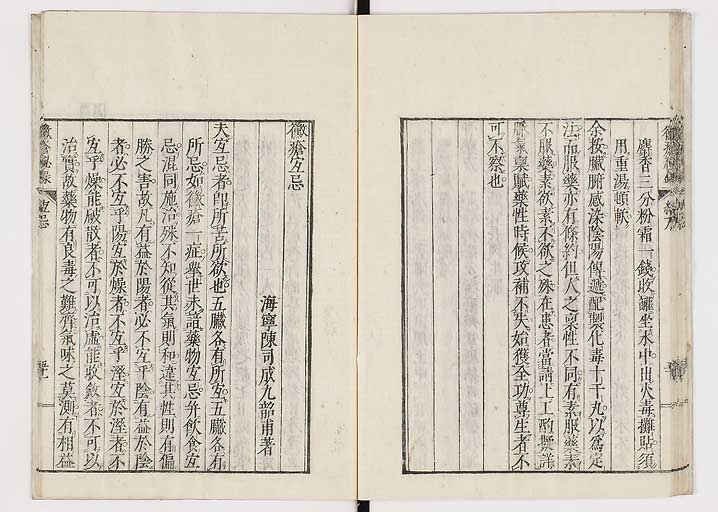 麝香三分粉霜一錢收罐坐水中出火毒攤貼須
用重湯頓軟
余按臟腑感染陰陽傳遞配製化毒十干九以為定
法而服藥亦有條約但人之稟性不同有素服藥素
不服藥素欲素不欲之殊在患者當請上工酌螶詳
稟賦藥性時候攻補不失始獲全功尊生者不
可不察也
黴瘡宜忌
海寧陳司成九韶甫著
夫宜忌者卽所苦所欲也五臟各有所宜五臟各有
所忌如黴瘡一症舉世未諳藥物宜忌并飲食宜
忌混同施治殊不知從其氣則和違其性則有偏
勝之害故凡有益於陽者必不宜乎陰有益於陰
者必不宜乎陽宜於燥者不宜乎溼宜於溼者不
宜乎燥能破散者不可以治虛能收斂者不可以
治實故藥物有良毒之難齊氣味之莫測有相益
黴瘡秘錄
宜忌